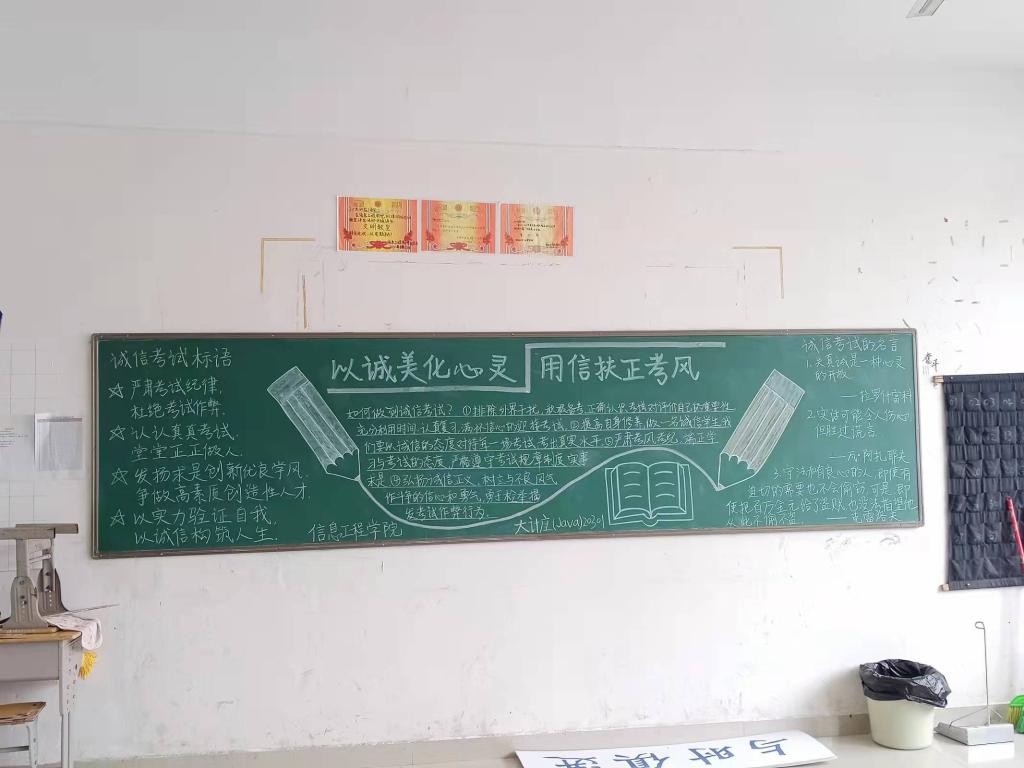 文明教室
诚信考试标语
☆ 严肃考试纪律.
杜绝考试作弊.
☆ 认认真真考试.
堂堂正正做人.
☆ 发扬求是创新优良学风
争做高素质创造性人才.
☆ 以实力验证自我.
以诚信构筑人生.
以诚美化心灵
用信扶正考风
如何做到诚信考试? ①排除外界干扰, 积极备考,正确认识考试对评价自己的重要性
充分利用时间,认真复习,满怀信心的迎接考试 ②提高自身修养,做一名诚信学生我
们要以诚信的态度对待每一场考试,考出真实水平 ③严肃考风考纪, 端正学
习与考试的态度,严格遵守考试规章制度,实事
求是 ④弘扬诚信正义, 树立与不良风气
作斗争的信心和勇气, 勇于检举揭
发考试作弊行为.
信息工程学院
大计应(Java)20301
诚信考试的名言
1.失真诚是一种心灵
的开放
——拉罗什富科
2.实话可能令人伤心
但胜过谎言.
——瓦·阿扎耶夫
3.守法和有良心的人, 即使有
迫切的需要也不会偷窃,可是,即
使把百万金元给了盗贼,也没法指望他
从此不偷不盗.
——克雷洛夫
与时俱进